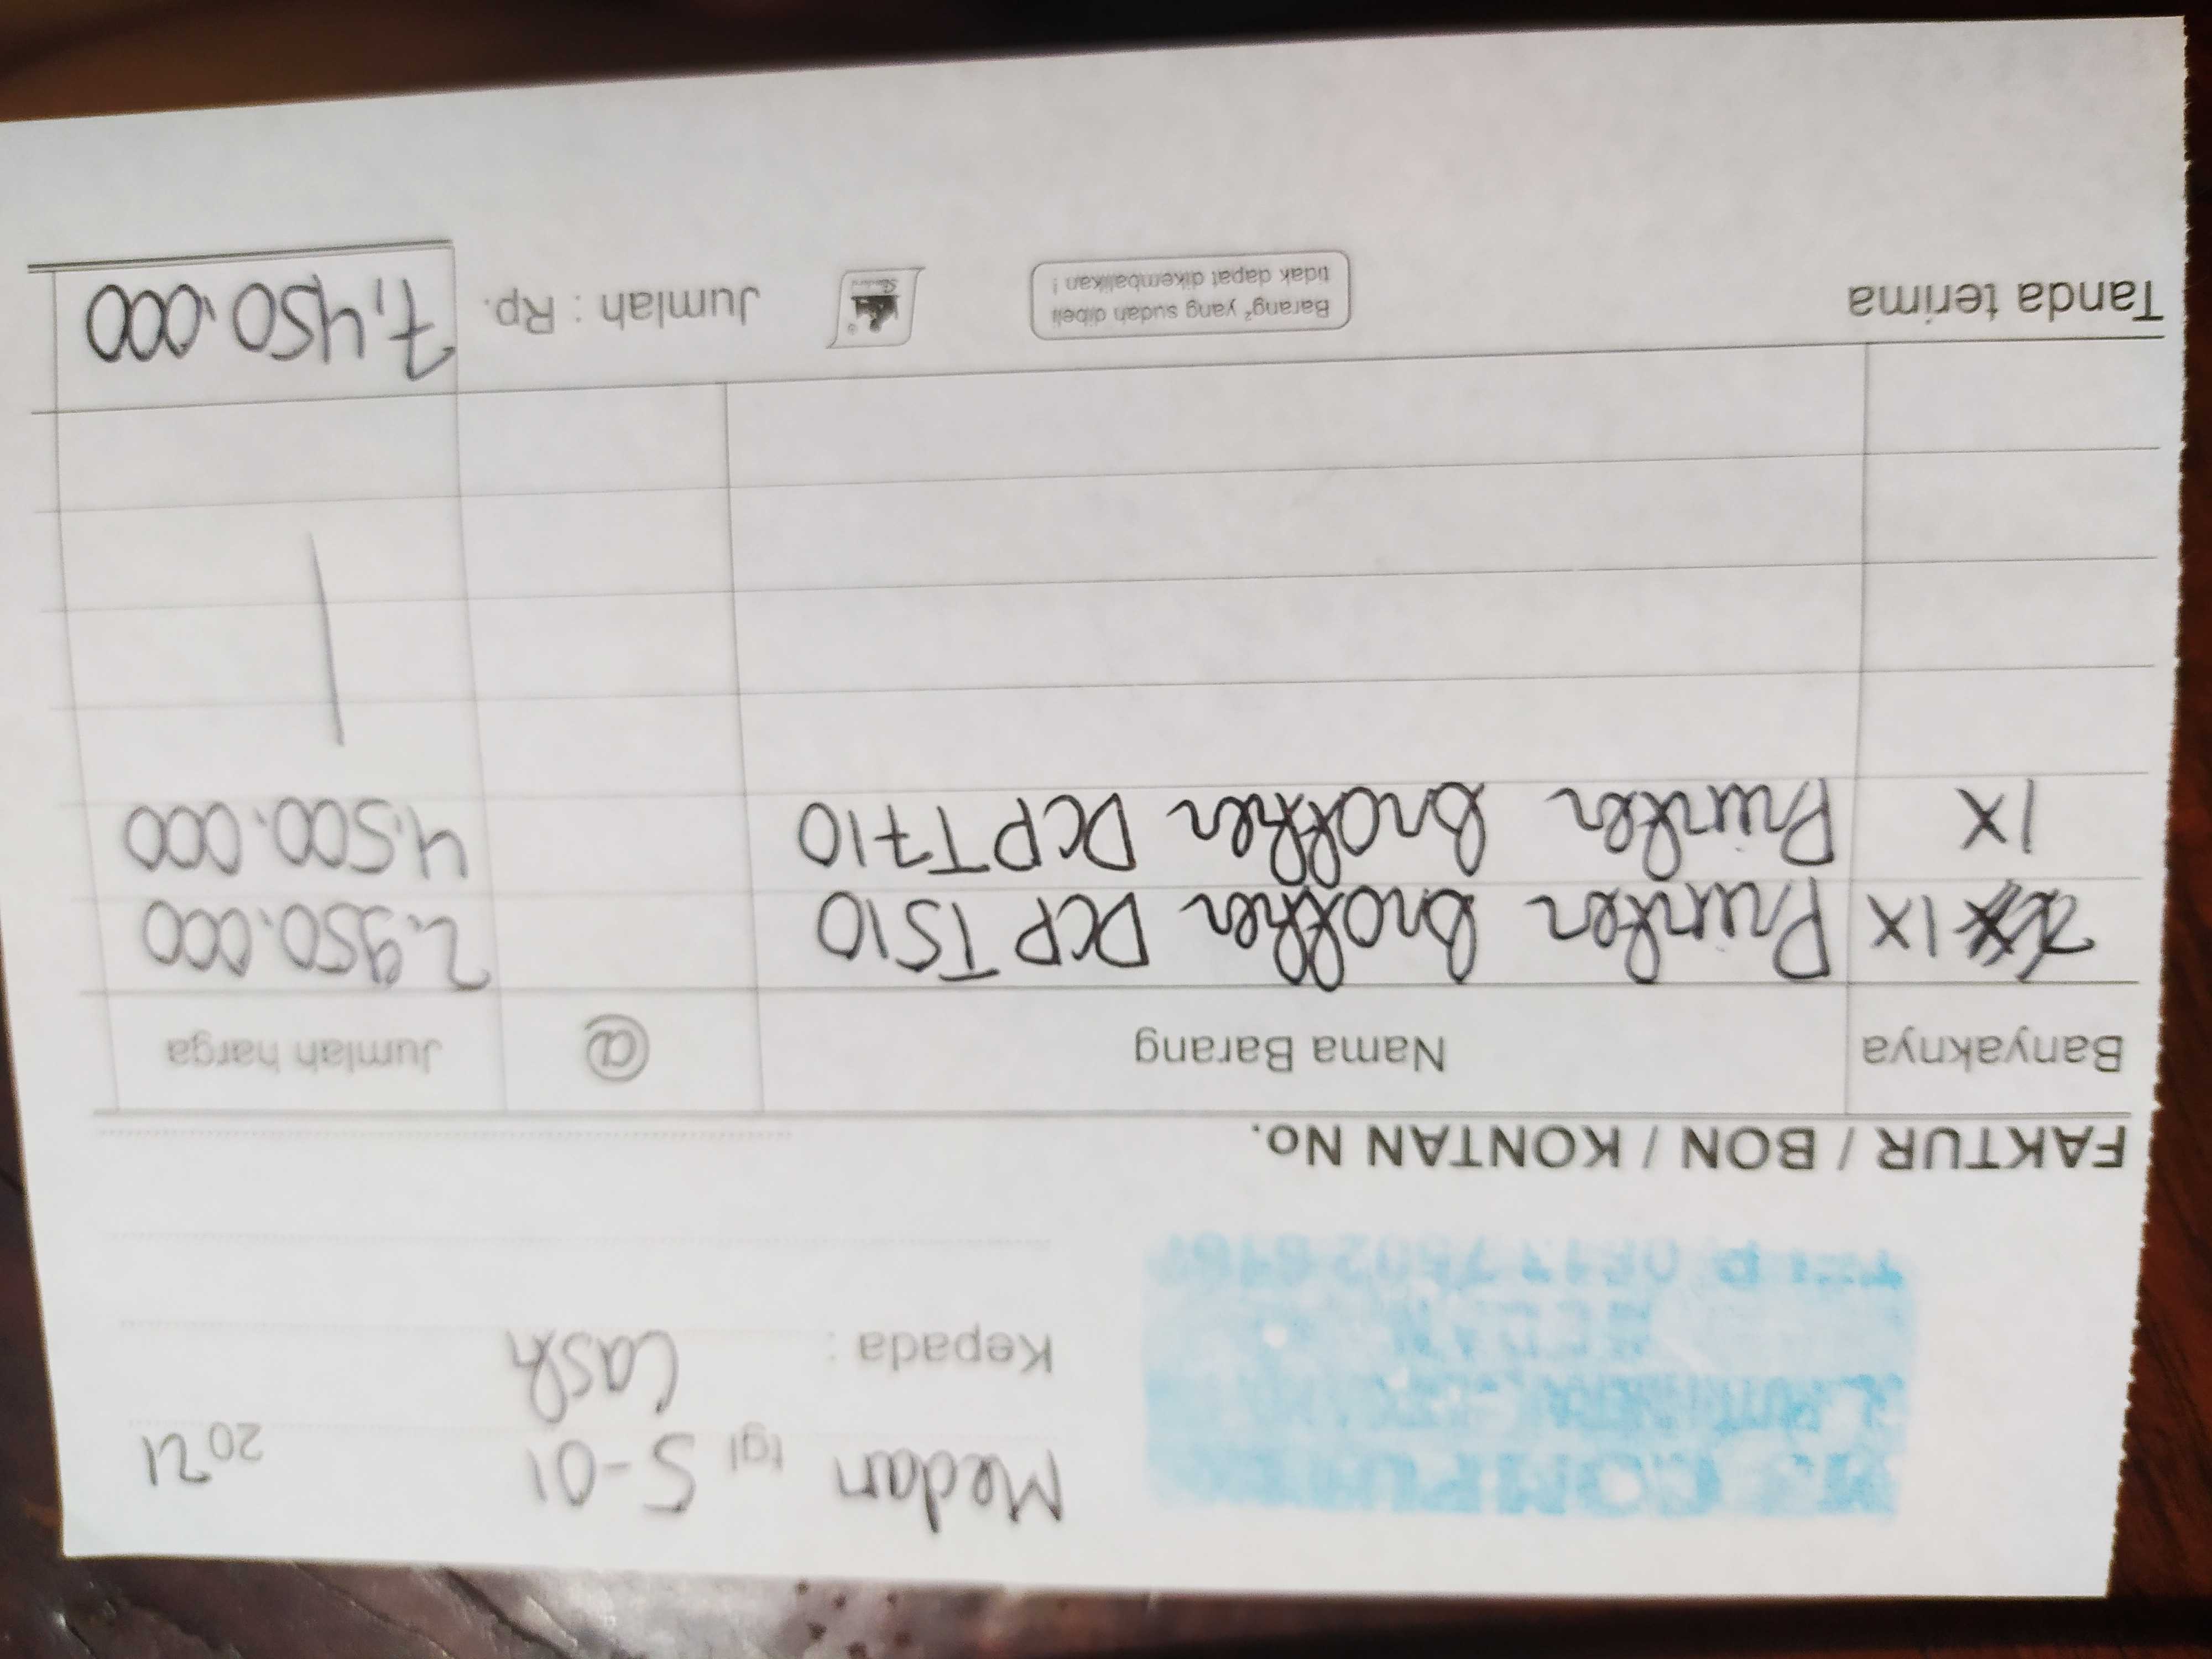 Medan tgl 5-01 2021
Kepada : Cash
MEDAN
FAKTUR / BON / KONTAN No.
Banyaknya Nama Barang @ Jumlah harga
1X Printer Brother DCP T510 2.950.000
1X Printer Brother DCP T710 4.500.000
Tanda terima
Barang² yang sudah dibeli
tidak dapat dikembalikan !
Jumlah : Rp. 7,450.000